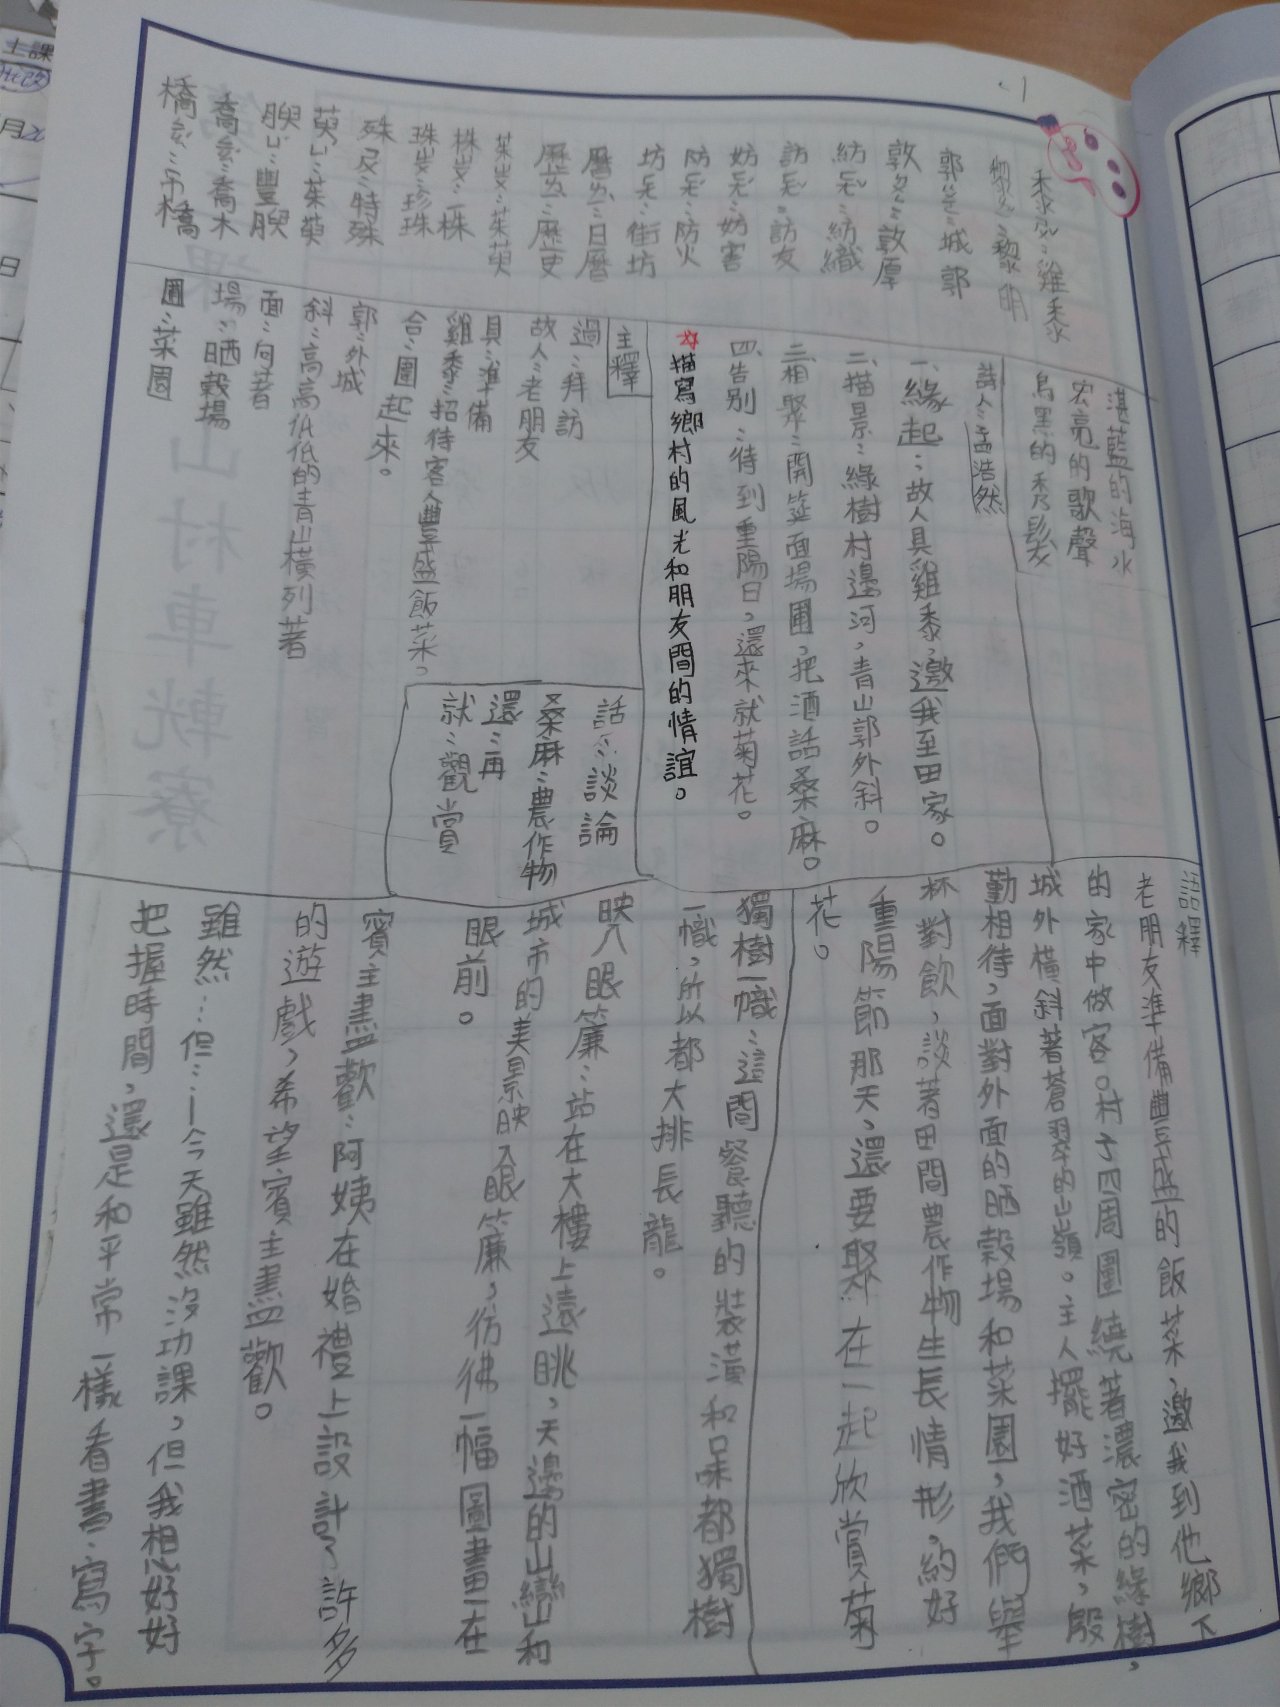 黍ㄕㄨˇ：雞黍
黎ㄌㄧˊ：黎明
郭ㄍㄨㄛ：城郭
敦ㄉㄨㄣ：敦厚
紡ㄈㄤˇ：紡織
訪ㄈㄤˇ：訪友
妨ㄈㄤˊ：妨害
防ㄈㄤˊ：防火
坊ㄈㄤ：街坊
曆ㄌㄧˋ：日曆
歷ㄌㄧˋ：歷史
茱ㄓㄨ：茱萸
株ㄓㄨ：一株
珠ㄓㄨ：珍珠
殊ㄕㄨ：特殊
萸ㄩˊ：茱萸
腴ㄩˊ：豐腴
喬ㄑㄧㄠˊ：喬木
橋ㄑㄧㄠˊ：吊橋
湛藍的海水
宏亮的歌聲
烏黑的秀髮
詩人：孟浩然
一、緣起：故人具雞黍，邀我至田家。
二、描景：綠樹村邊河，青山郭外斜。
三、相聚：開筵面場圃，把酒話桑麻。
四、告別：待到重陽日，還來就菊花。
☆描寫鄉村的風光和朋友間的情誼。
主釋
過：拜訪
故人：老朋友
具：準備
雞黍：招待客人豐盛飯菜。
合：圍起來。
郭：外城
斜：高高低低的青山橫列著
面：向著
場：晒穀場
圃：菜園
話：談論
桑麻：農作物
還：再
就：觀賞
語釋
老朋友準備豐盛的飯菜，邀我到他鄉下
的家中做客。村子四周圍繞著濃密的綠樹，
城外橫斜著蒼翠的山嶺。主人擺好酒菜，殷
勤相待，面對外面的晒穀場和菜園，我們舉
杯對飲，談著田間農作物生長情形，約好
重陽節那天，還要聚在一起欣賞菊
花。
獨樹一幟：這間餐聽的裝潢和味都獨樹
一幟，所以都大排長龍。
映入眼簾：站在大樓上遠眺，天邊的山巒和
城市的美景映入眼簾，彷彿一幅圖畫在
眼前。
賓主盡歡：阿姨在婚禮上設計了許多
的遊戲，希望賓主盡歡。
雖然…但…：今天雖然沒功課，但我想好好
把握時間，還是和平常一樣看書、寫字。